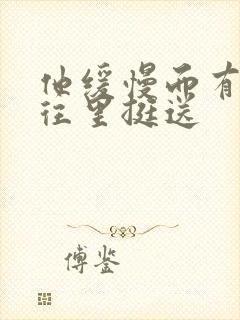 他缓慢而有
往里挺送
傅鉴